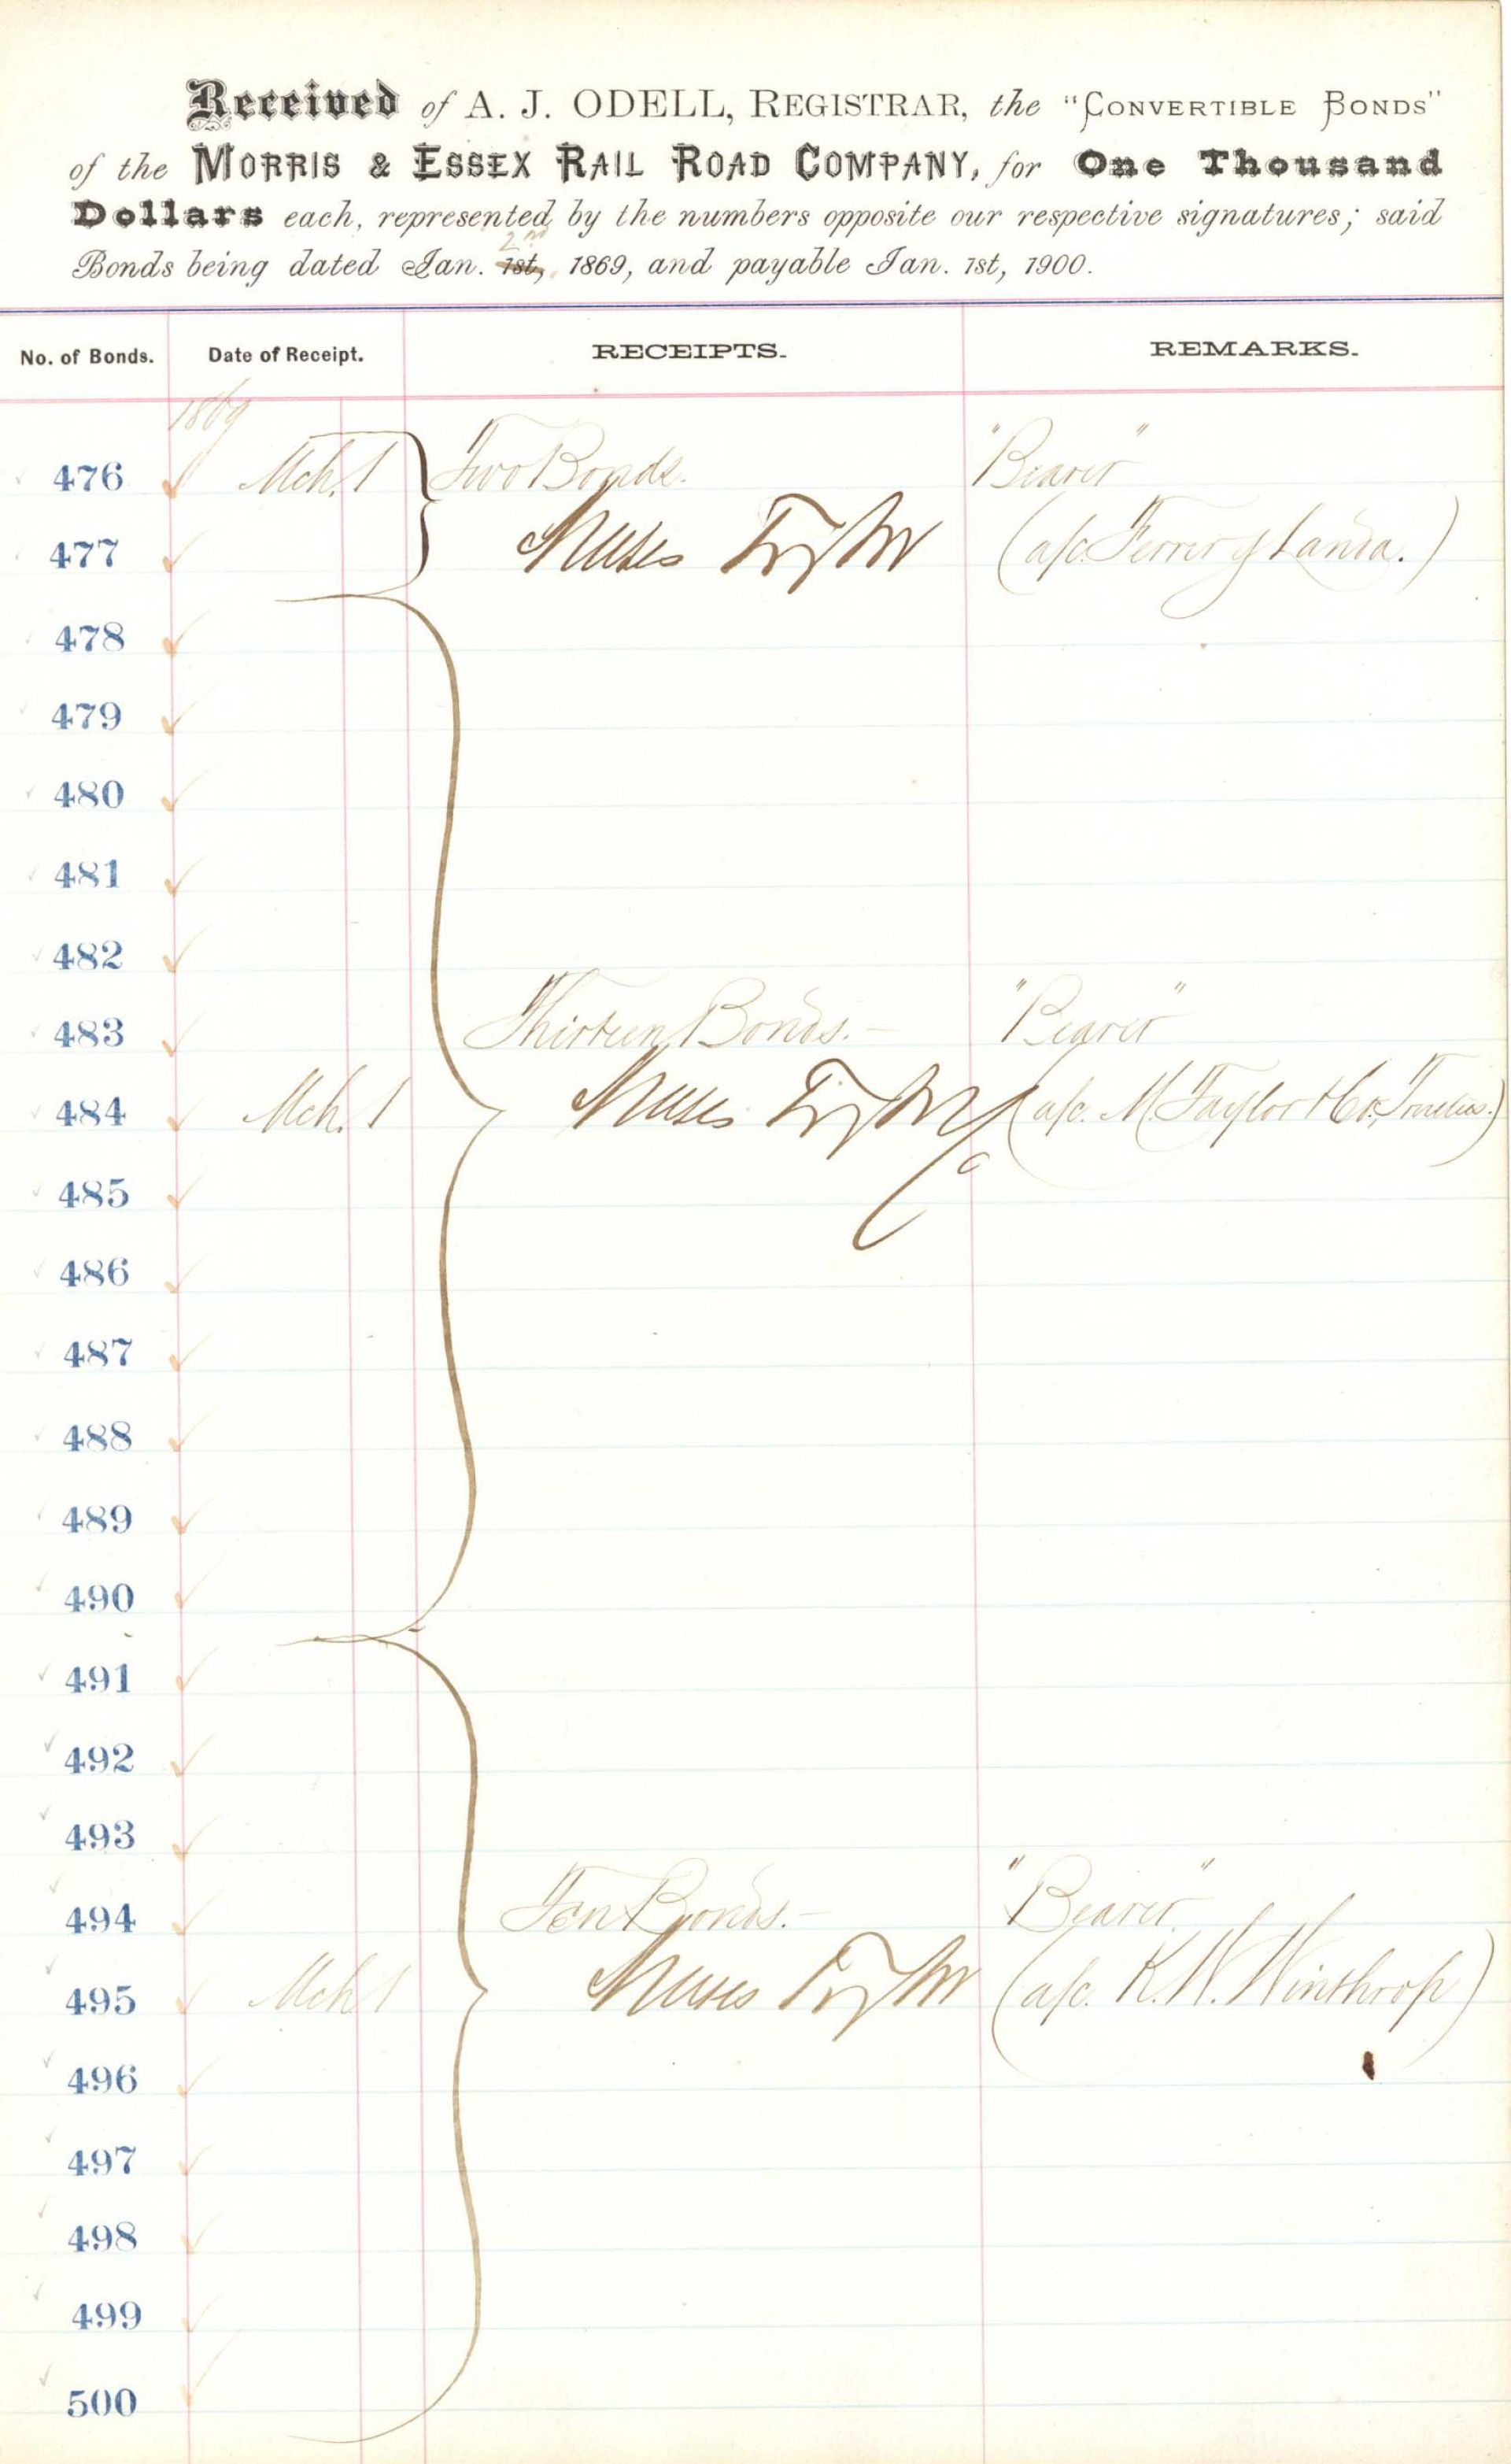 Received of A. J. ODELL, REGISTRAR, the "CONVERTIBLE BONDS"
of the MORRIS & ESSEX RAIL ROAD COMPANY, for One Thousand
Dollars each, represented by the numbers opposite our respective signatures; said
2nd
Bonds being dated Jan. 1st, 1869, and payable Jan. 1st, 1900.
No. of Bonds. Date of Receipt. RECEIPTS. REMARKS.
1869
476 Mch. 1 Two Bonds. "Bearer"
477 Moses Taylor (a/c. Ferrer y Landa.)
478
479
480
481
482
483 Thirteen Bonds. "Bearer"
484 Mch. 1 Moses Taylor (a/c. M. Taylor & Co., Trustees.)
485
486
487
488
489
490
491
492
493
494 Ten Bonds. "Bearer"
495 Mch 1 Moses Taylor (a/c. K. W. Winthrop)
496
497
498
499
500